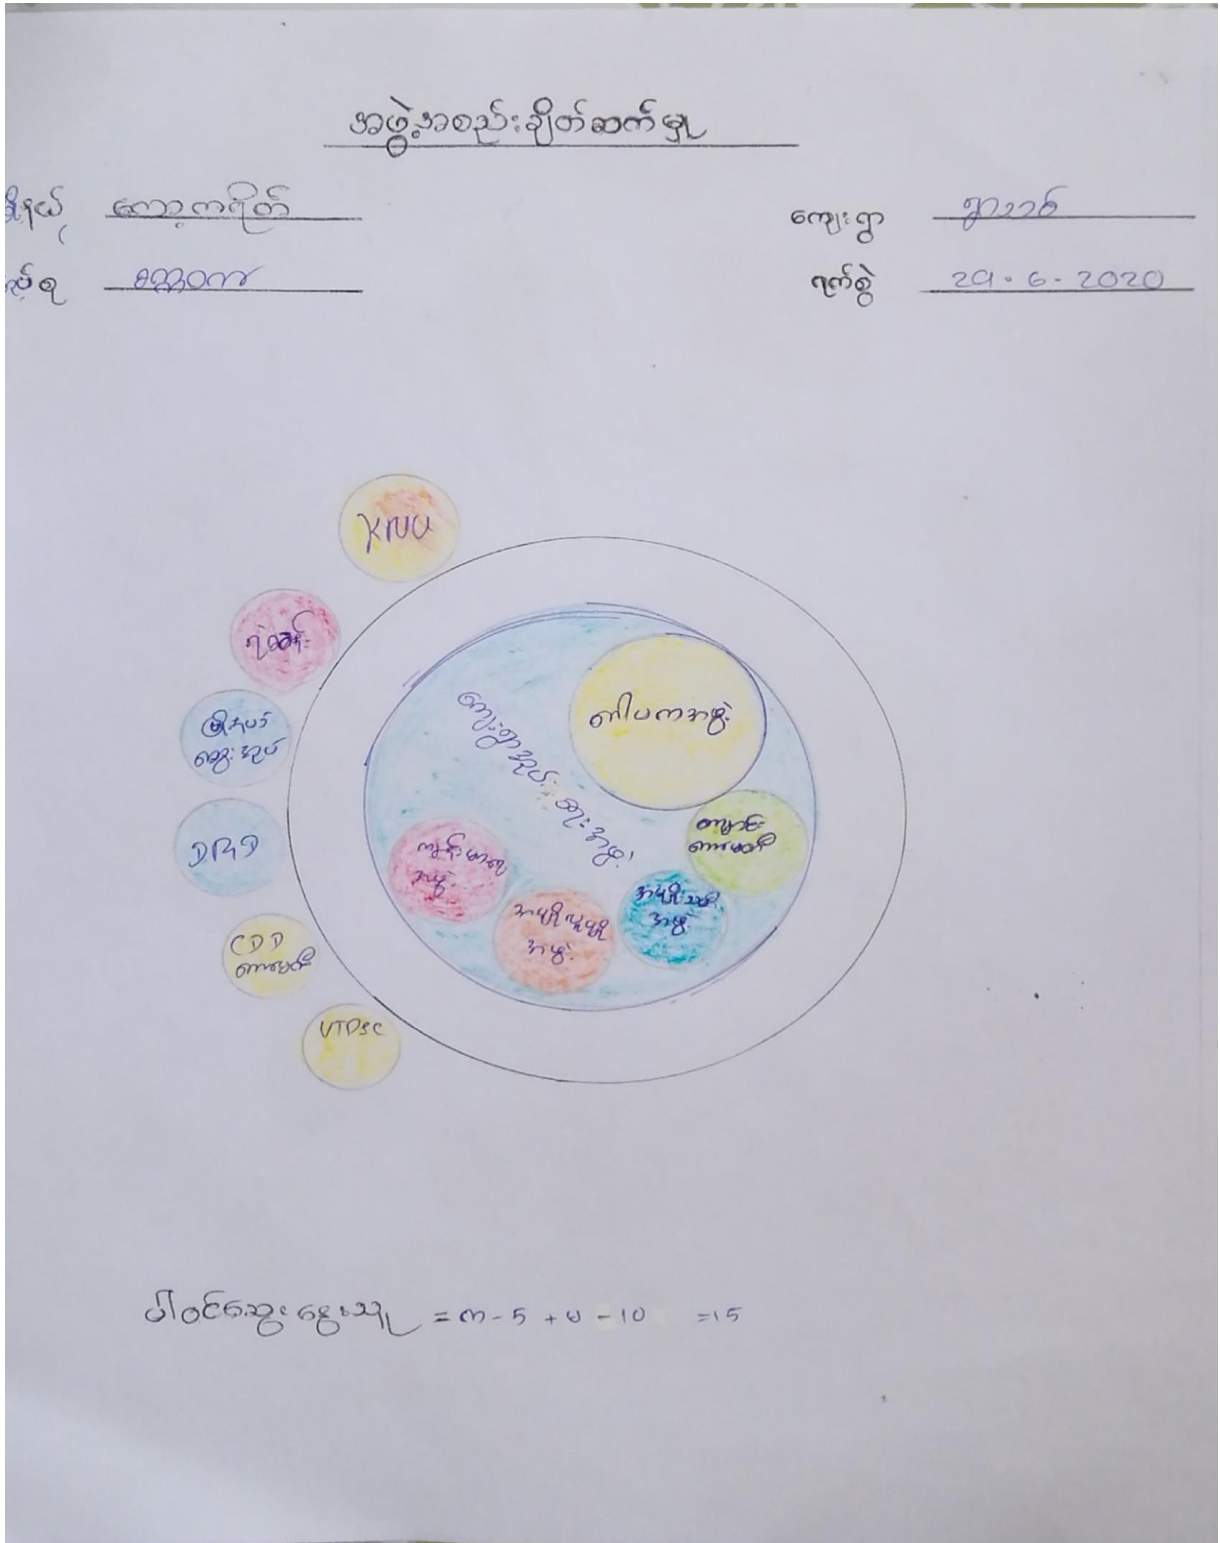 အဖွဲ့အစည်းချိတ်ဆက်မှု
မြို့နယ် ကော့ကရိတ်
ကျေးရွာ ရွာသစ်
ရက်စွဲ 29.6.2020
KNU
ရဲစခန်း
မြို့နယ်
အုပ်
DRD
CDD
ကော်မတီ
VTDSC
ကျေးရွာအုပ်
အဖွဲ့
အဖွဲ့
ကျောင်း
ကော်မတီ
ကျန်းမာရေး
အဖွဲ့
အဖွဲ့
အမျိုးသမီး
အဖွဲ့
ပါဝင်ဆွေးနွေးသူ = က-5 + မ-10 =15